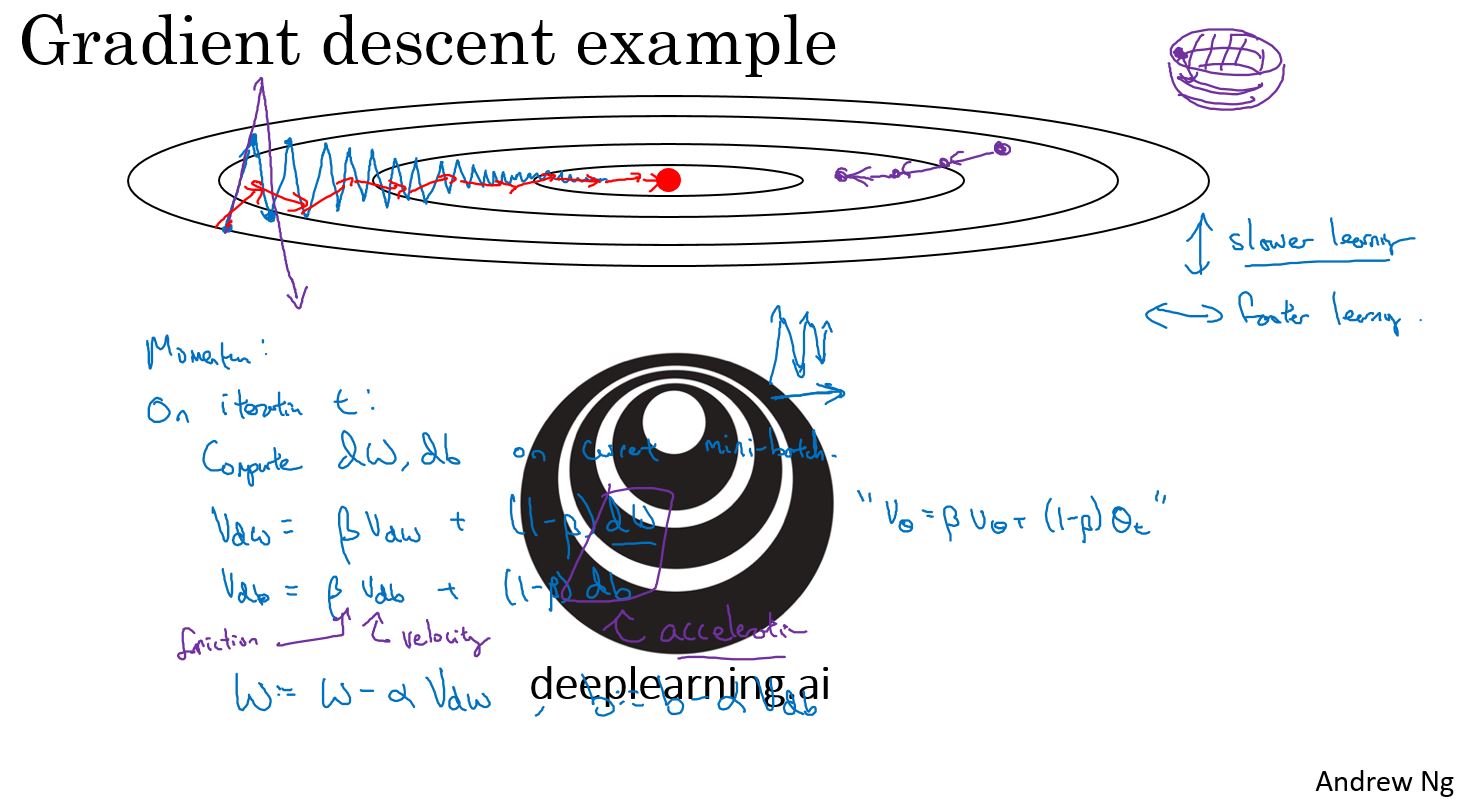 Gradient descent example
slower learning
faster learning.
Momentum:
On iteration t:
Compute dW, db on current mini-batch.
Vdw = β Vdw + (1-β) dW
"Vθ = β Vθ + (1-β) θt"
Vdb = β Vdb + (1-β) db
friction velocity acceleration
W := W - α Vdw , b := b - α Vdb
deeplearning.ai
Andrew Ng